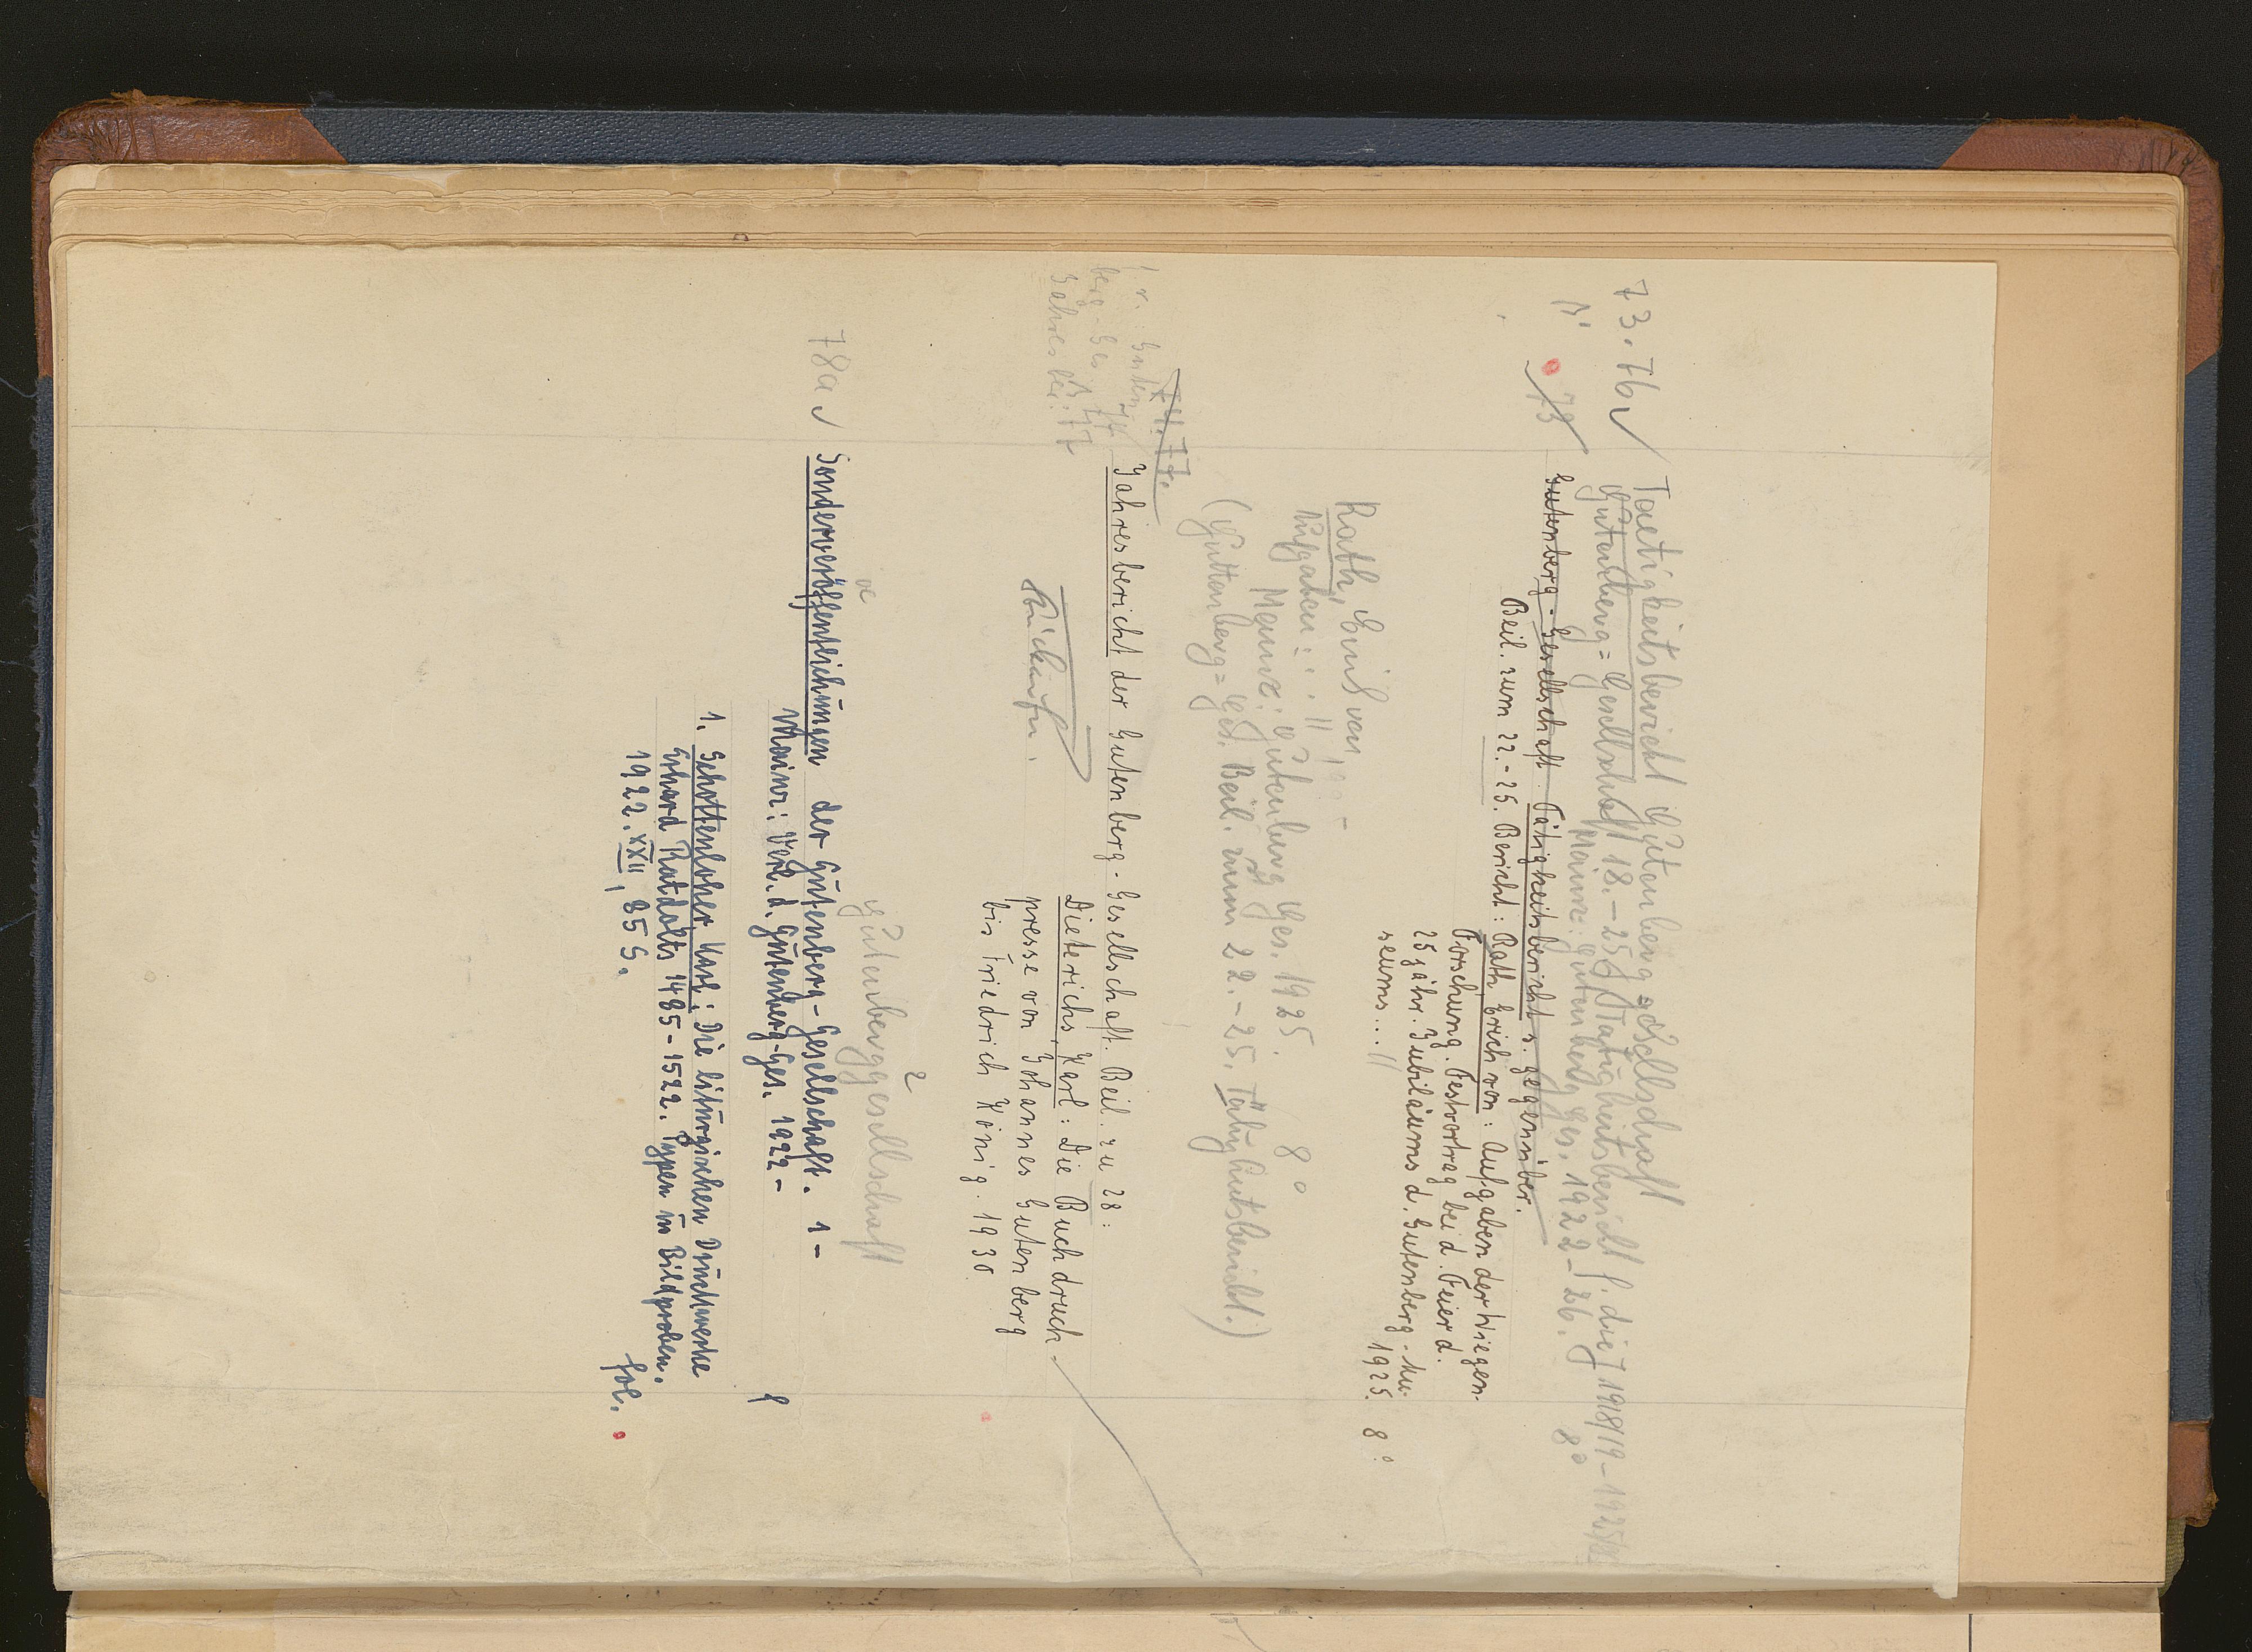 73. 76 Taetigkeitsbericht Gutenberggesellschaft
Gutenberg=Gesellschaft 18.-25. Tätigkeitsbericht f. die J 1918/19-1925/26
Mainz: Gutenberg Ges. 1922-26. 8°
73 Gutenberg-Gesellschaft. Tätigkeitsbericht s. gegenüber.
Beil. zum 22.-25. Bericht: Rath, Erich von: Aufgaben der Wiegen-
forschung. Festvortrag bei d. Feier d.
25jähr. Jubiläums d. Gutenberg-Mu-
seums...
1925. 8°
Rath, Erich von,
Aufgaben ...
Mainz: Gutenberg Ges. 1925. 8°
(Guttenberg=Ges. Beil. zum 22.-25. Tätigkeitsbericht.)
74. 77.
Jahresbericht der Gutenberg-Gesellschaft. Beil. zu 28:
Dieterichs, Karl: Die Buchdruck-
presse von Johannes Gutenberg
bis Friedrich König. 1930
s. Guten
berg-Ges
Jahresber.
74
77
Gutenberggesellschaft
oe
2
78a Sonderveröffentlichungen der Gutenberg-Gesellschaft. 1-
Mainz: Verl. d. Gutenberg-Ges. 1922-
1. Schottenloher, Karl: Die liturgischen Druckwerke
Erhard Ratdolts 1485-1522. Typen in Bildproben.
1922. XXII, 85 S. fol.